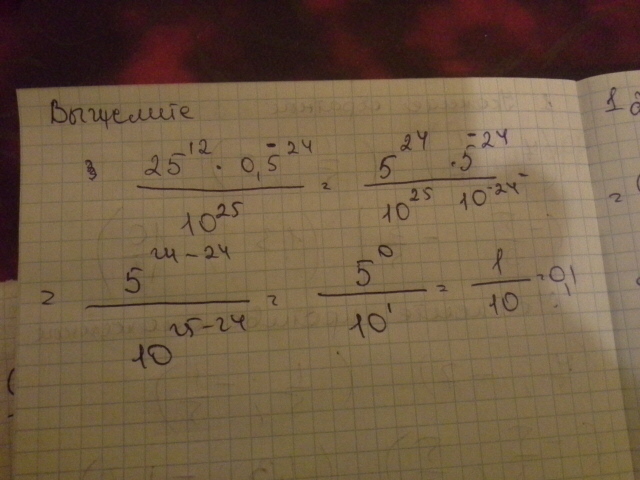 Вычислите
3 25^12 · 0,5^-24 / 10^25 = 5^24 · 5^-24 / 10^25 10^-24 =
= 5^24-24 / 10^25-24 = 5^0 / 10^1 = 1 / 10 = 0,1
1
=